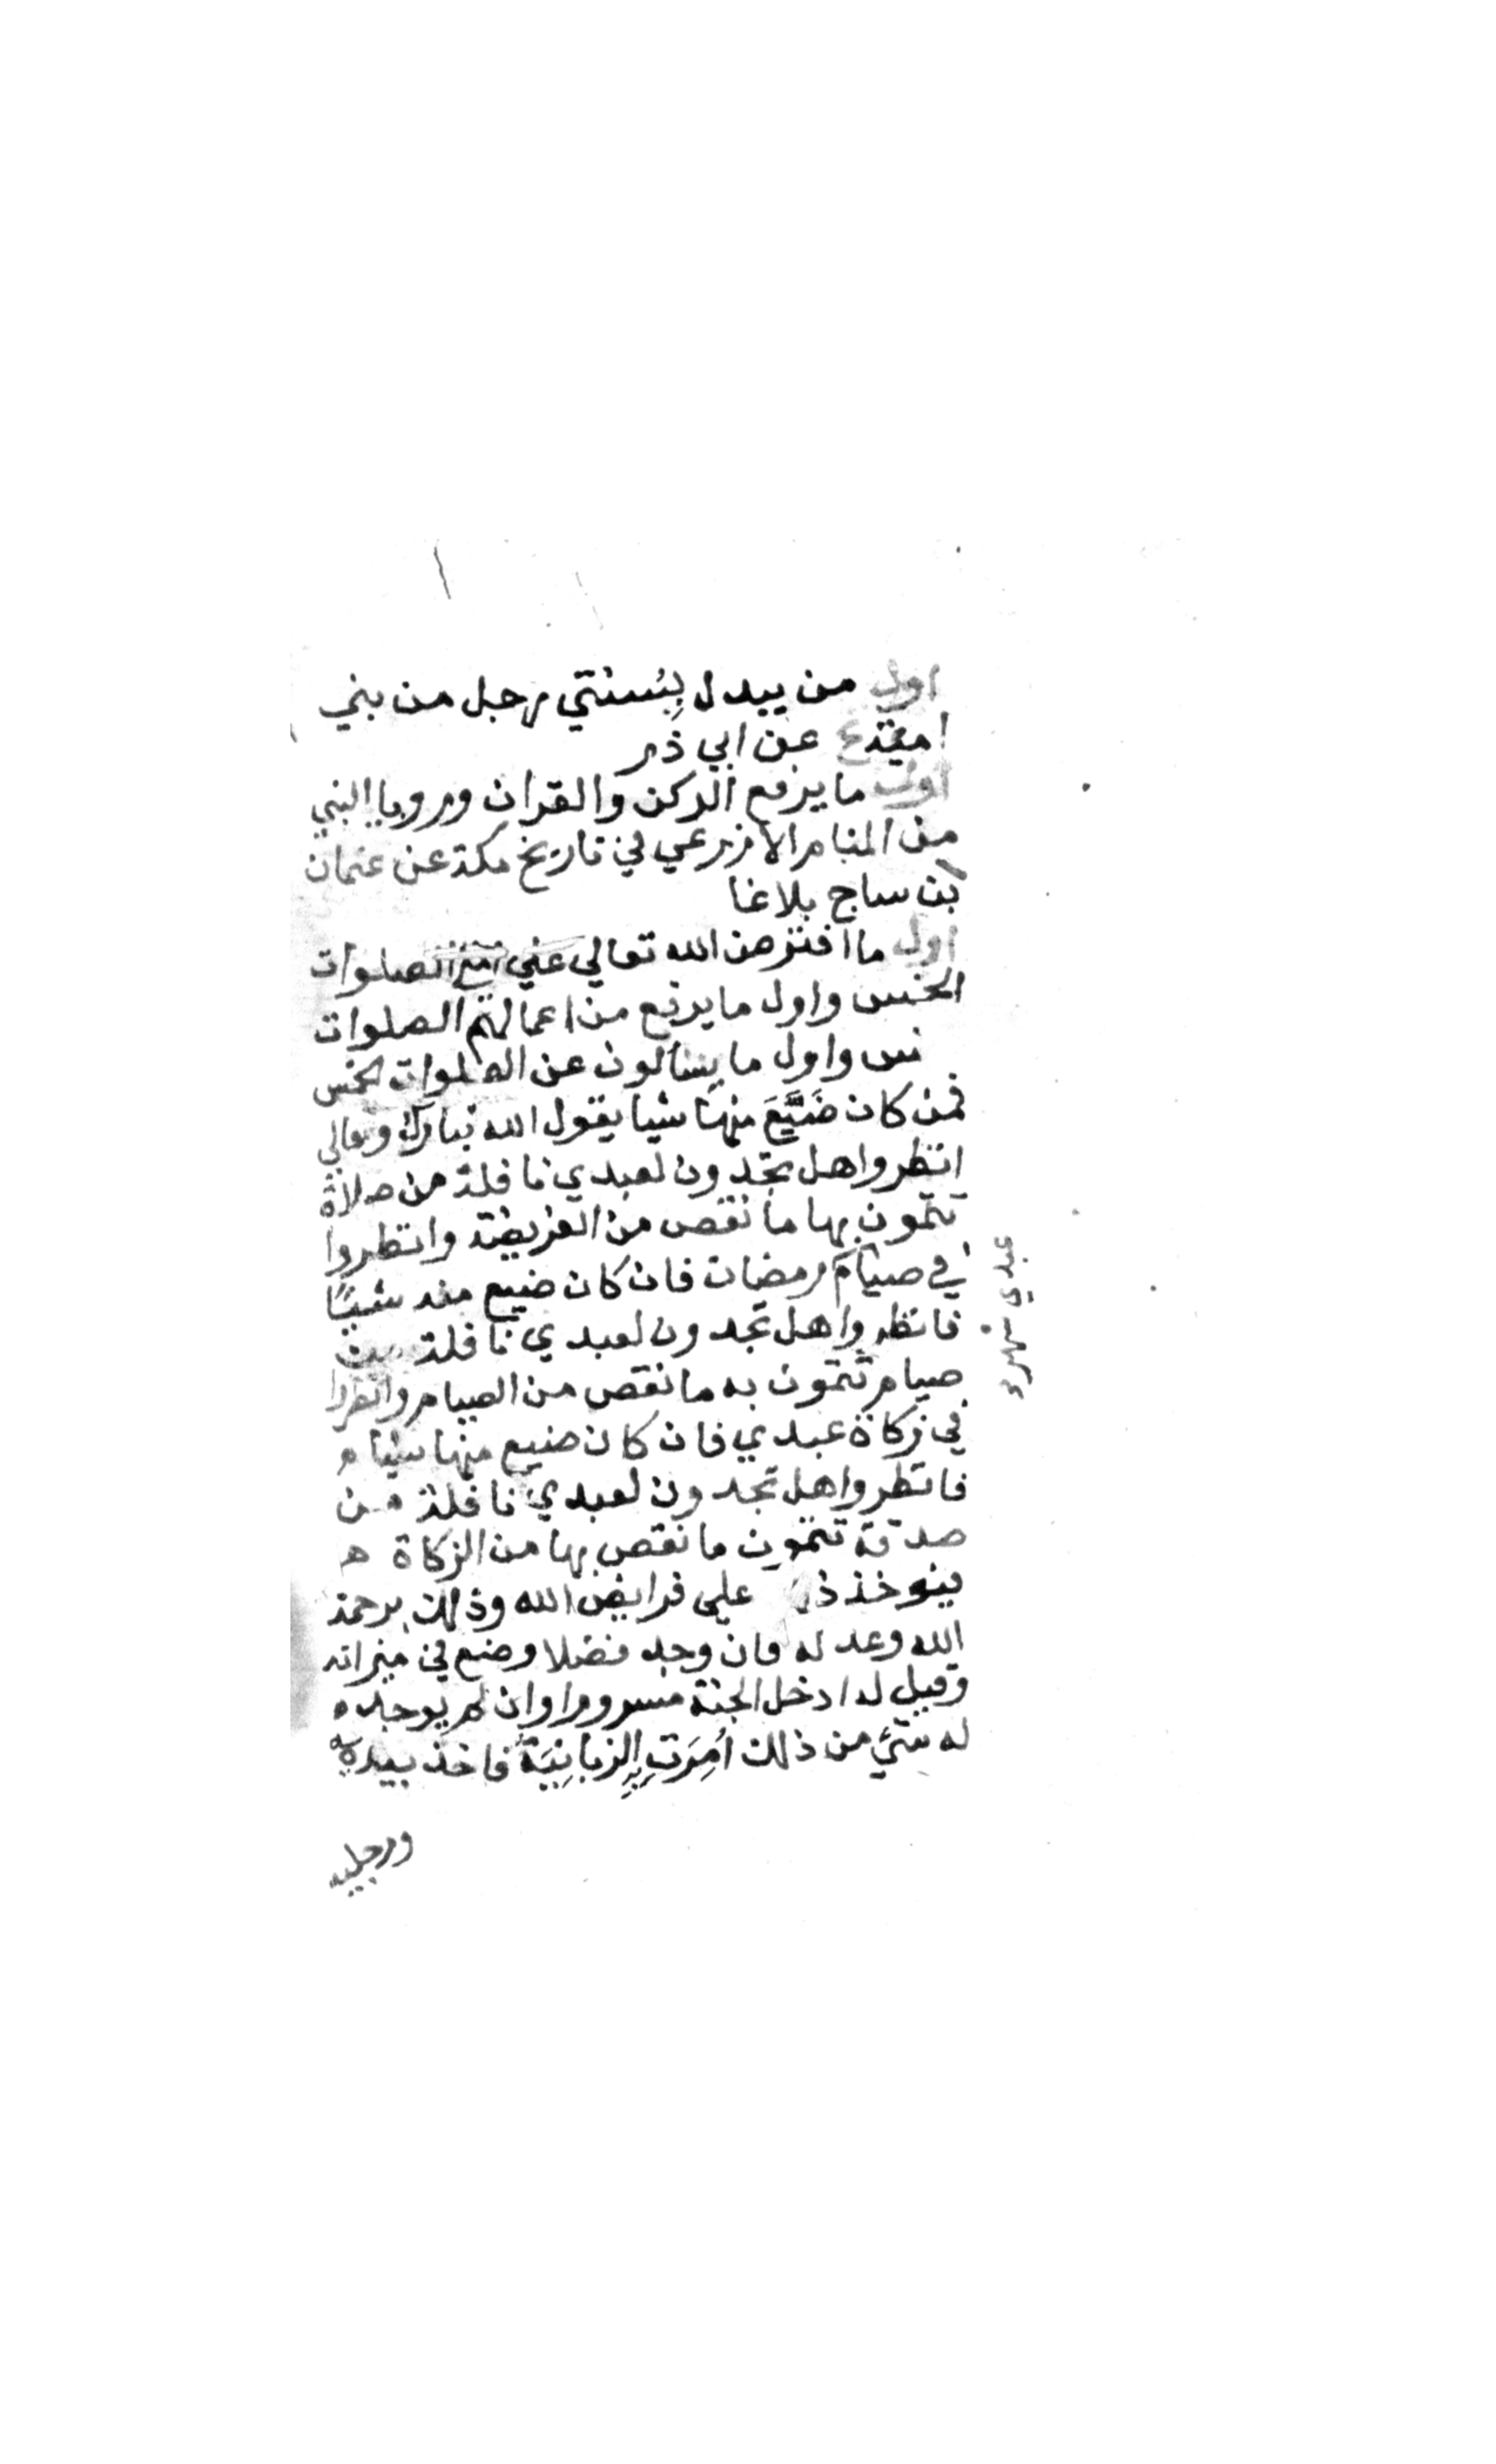 اول من يبدل بِسُنتي رجل من بني
ا مية ع عن ابي ذر
اول ما يرفع الركن والقران ورويا النبي
من المنام الازرعي في تاريخ مكة عن عثمان
بن ساج بلاغا
اول ما افترض الله تعالي علي امتي الصلوات
الخمس واول ما يرفع من اعمالهم الصلوات
نس واول ما يسالون عن الصلوات الخمس
فمن كان ضَيَّعَ منها شيا يقول الله تبارك وتعالي
انظروا هل تجدون لعبدي نافلة من صلاة
تتمون بها ما نقص من الفريضة وانظروا
في صيام رمضان فان كان ضيع منه شيئًا
فانظروا هل تجدون لعبدي نافلة من
صيام تتمون به ما نقص من الصيام وانظروا
في زكاة عبدي فان كان ضيع منها شيا م
فانظروا هل تجدون لعبدي نافلة من
صدقة تتمون ما نقص بها من الزكاة ه
فيوخذ علي فرايض الله وذلك برحمة
الله وعدله فان وجد فضلا وضع في ميزانه
وقيل له ادخل الجنة مسرورا وان لم يوجد ه
له شيء من ذلك اُمِرَتِ الزبانِيَةُ فاخذ بيديه
ورجليه
عبدي شهر